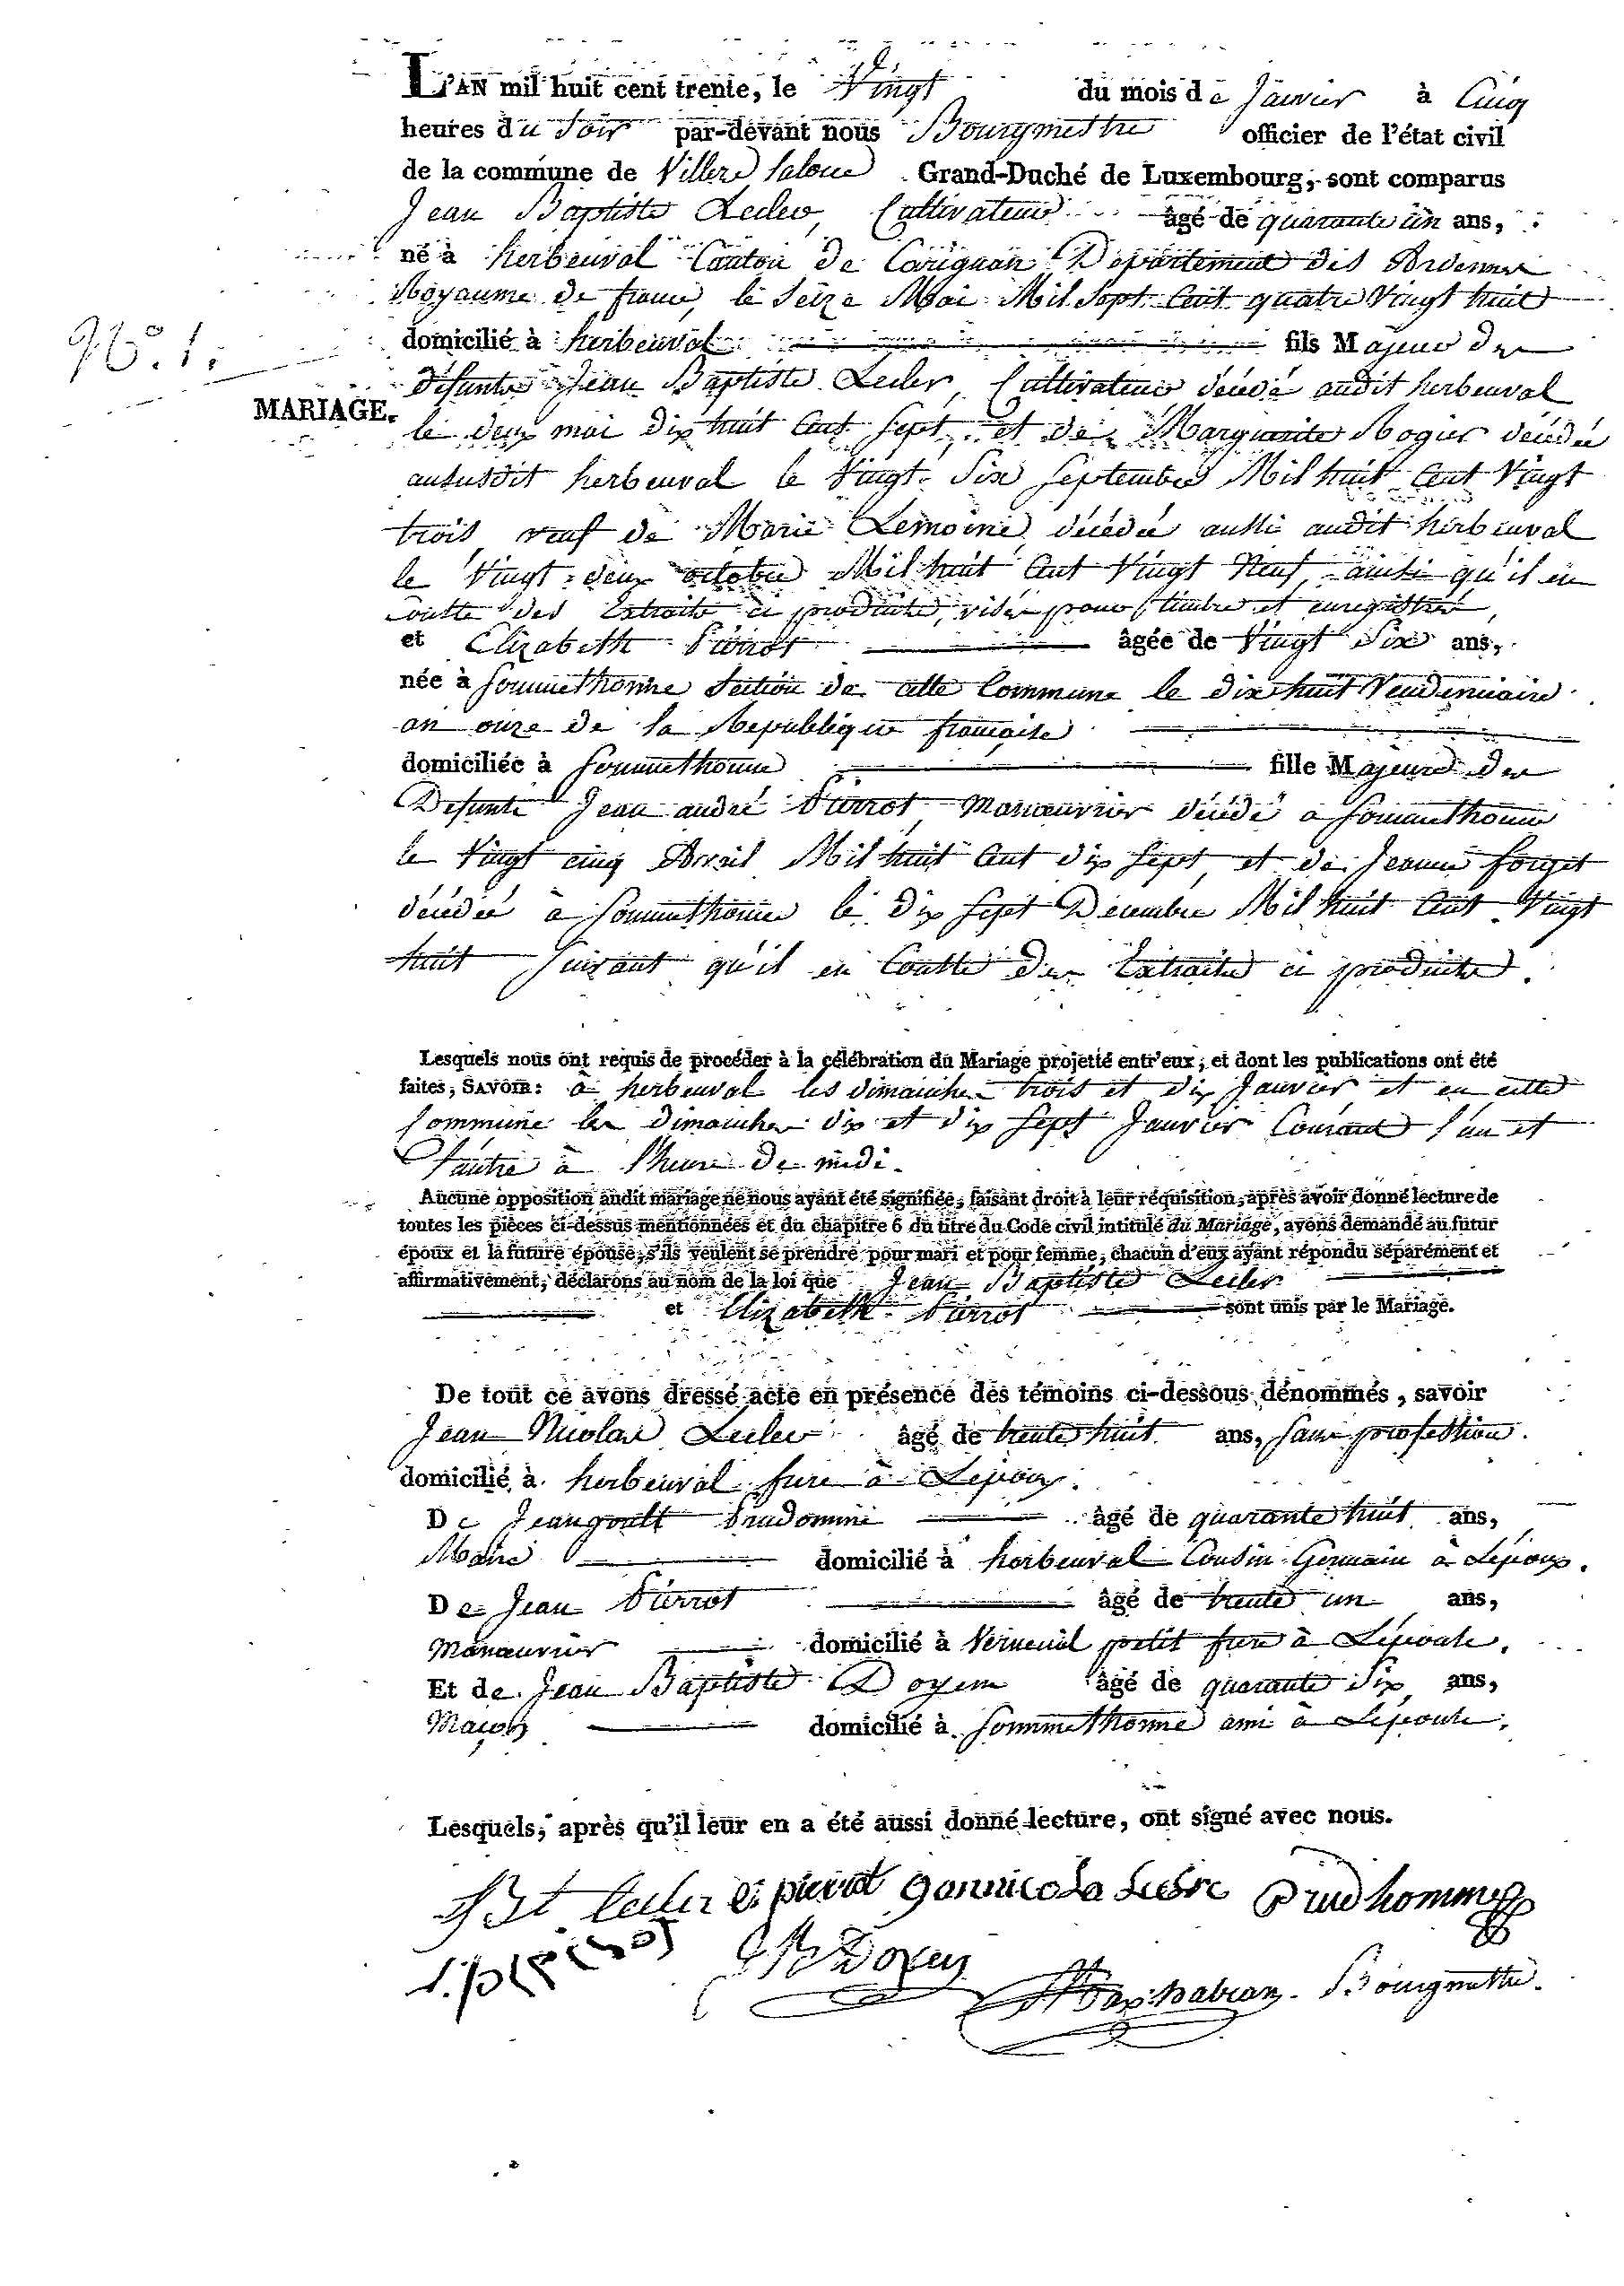 L'AN mil huit cent trente, le Vingt du mois de Janvier à Cinq
heures du Soir par-devant nous Bourgmestre officier de l'état civil
de la commune de Villers laloue Grand-Duché de Luxembourg, sont comparus
Jean Baptiste Lecler, Cultivateur âgé de quarante un ans,
né à herbeuval Canton de Carignan Département des Ardennes
Royaume de france, le Seize Mai Mil Sept Cent quatre Vingt huit
No. 1.
domicilié à herbeuval fils Majeur des
défunts Jean Baptiste Lecler, Cultivateur décédé audit herbeuval
MARIAGE.
le deux mai dix huit Cent Sept, et de Marguerite Rogier décédée
aususdit herbeuval le Vingt Six Septembre Mil huit Cent Vingt
trois, veuf de Marie Lemoine décédée aussi audit herbeuval
le Vingt-deux octobre Mil huit Cent Vingt Neuf, ainsi qu'il en
Conste des Extraits ci produits, visés pour timbre et enregistrés,
et Elizabeth Pierrot âgée de Vingt Six ans,
née à Sommethonne Section de cette Commune le dix huit Vendemiaire
an onze de la Republique française
domiciliée à Sommethonne fille Majeure des
Defunts Jean andré Pierrot, Manœuvrier décédé à Sommethonne
le Vingt cinq Avril Mil huit Cent dix Sept, et de Jeanne forget
décédée à Sommethonne le dix Sept Décembre Mil huit Cent Vingt
huit Suivant qu'il en Conste des Extraits ci produits.
Lesquels nous ont requis de procéder à la célébration du Mariage projetté entr'eux, et dont les publications ont été
faites, SAVOIR: à herbeuval les dimanches trois et dix Janvier et en cette
Commune les dimanches dix et dix Sept Janvier Courant l'un et
l'autre à l'heure de midi.
Aucune opposition audit mariage ne nous ayant été signifiée, faisant droit à leur réquisition, après avoir donné lecture de
toutes les pièces ci-dessus mentionnées et du chapitre 6 du titre du Code civil intitulé du Mariage, avons demandé au futur
époux et la future épouse, s'ils veulent se prendre pour mari et pour femme, chacun d'eux ayant répondu séparément et
affirmativement, déclarons au nom de la loi que Jean Baptiste Lecler
et Elizabeth Pierrot sont unis par le Mariage.
De tout ce avons dressé acte en présence des témoins ci-dessous dénommés, savoir
Jean Nicolas Lecler âgé de trente huit ans, Sans profession.
domicilié à herbeuval frere à L'epoux.
De Jeangoult Prudomme âgé de quarante huit ans,
Maire domicilié à herbeuval Cousin Germain à L'époux.
De Jean Pierrot âgé de trente un ans,
Manœuvrier domicilié à Verneuil petit frere à L'épouse.
Et de Jean Baptiste Doyen âgé de quarante Six ans,
Maçon domicilié à Sommethonne ami à L'épouse.
Lesquels, après qu'il leur en a été aussi donné lecture, ont signé avec nous.
JBt lecler E pierrot Prudhomme
JB Doyen Bourgmestre.